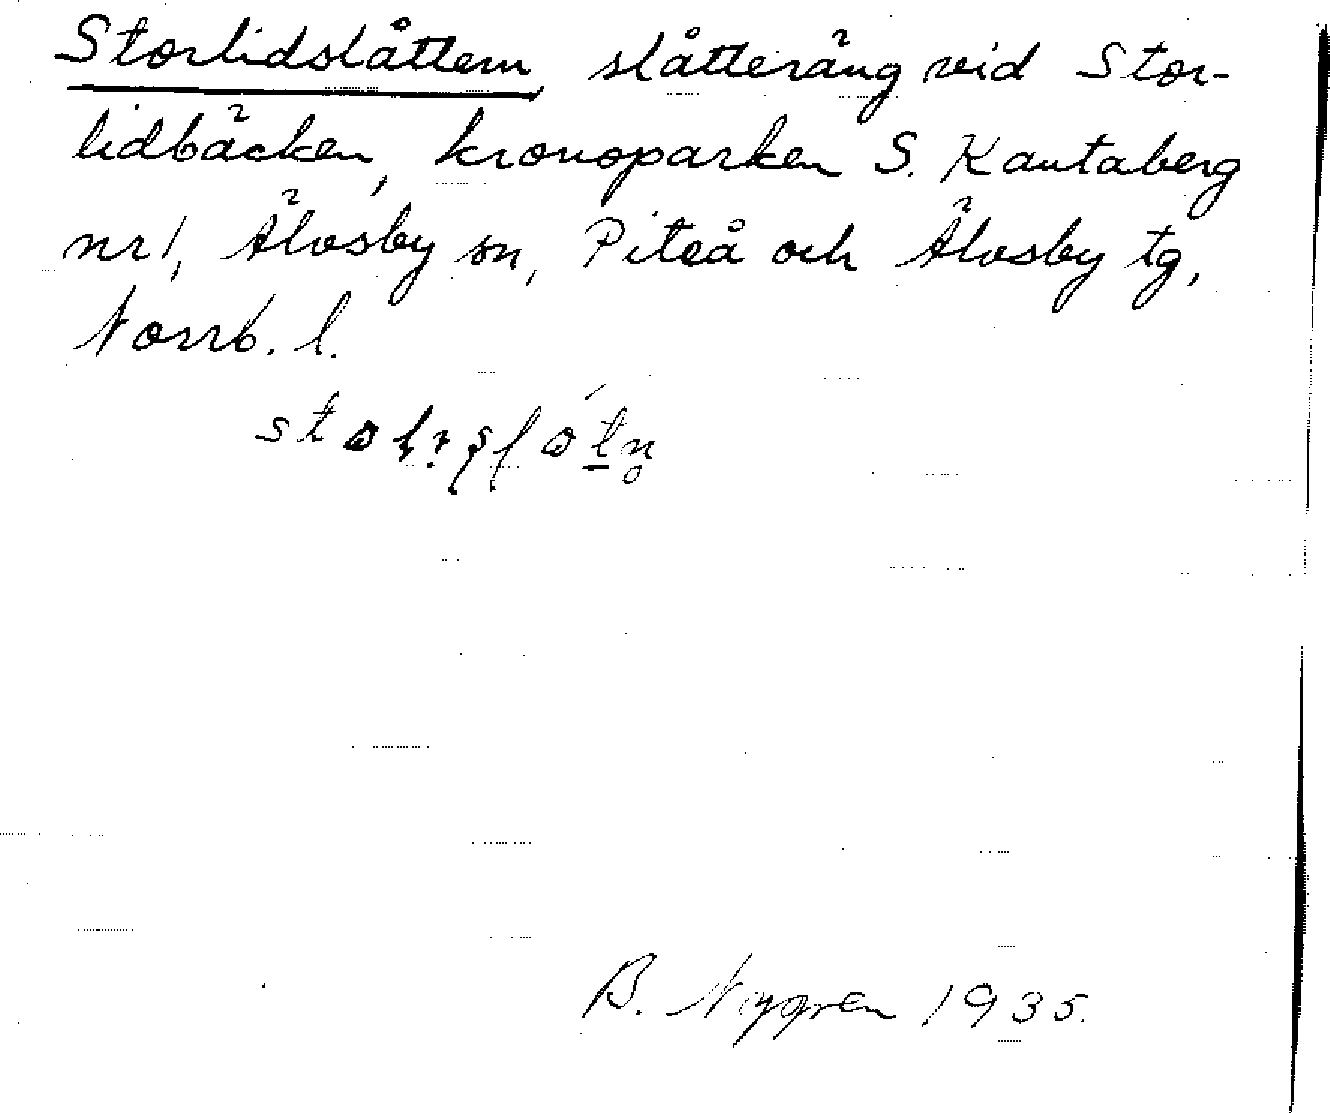 Storlidslåtten slåtteräng vid Stor-
lidbäcken, kronoparken S. Kantaberg
nr 1, Älvsby sn, Piteå och Älvsby tg,
Norrb. l.
B. Nygren 1935.